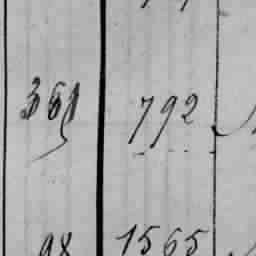 361 792
98 1565